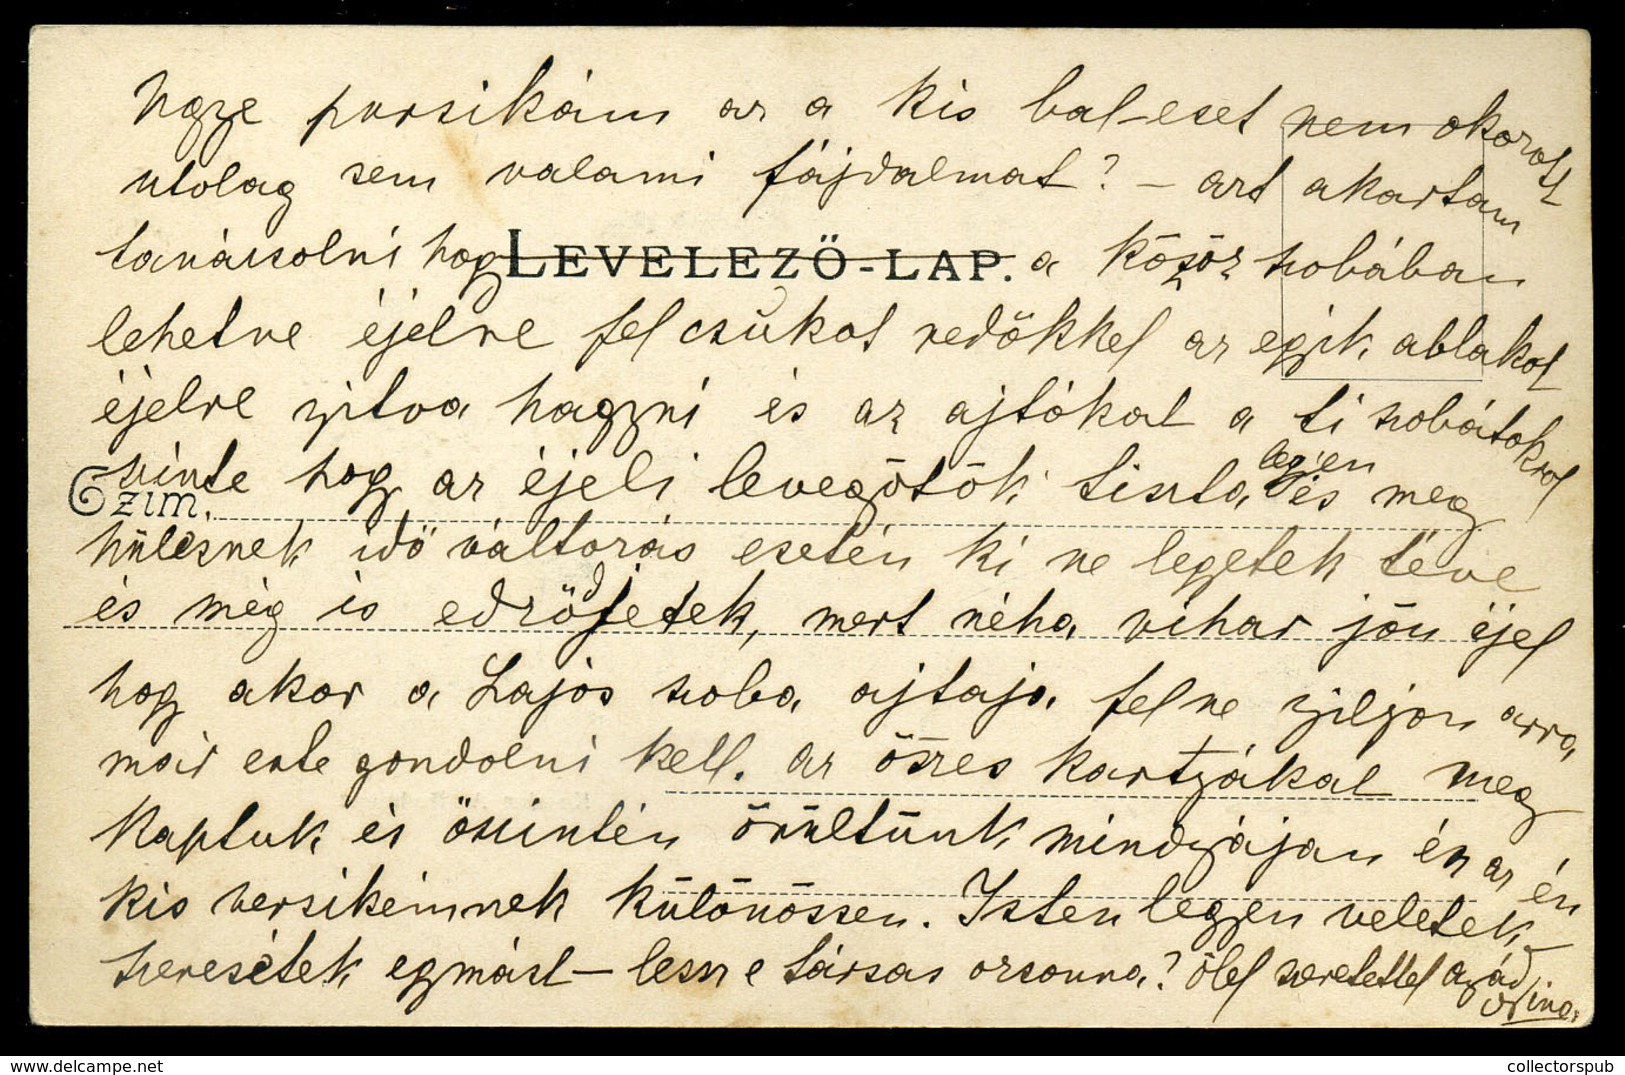 Ugye pursikám az a kis bal-eset nem okozott
utolag sem valami fájdalmat? – azt akartam
tanácsolni hogy LEVELEZŐ-LAP. a közös szobában
lehetne éjelre fel csukot redőkkel az egyik ablakot
éjelre nyitva hagyni és az ajtókat a ti szobátokrol
szinte hogy az éjeli levegőtök tiszta legyen és meg
Czim.
hülésnek idő változás esetén ki ne legyetek téve
és még is edződjetek, mert néha vihar jön éjel
hogy akor a Lajos szoba ajtaja fel ne nyiljon arra
már este gondolni kell. az öszes kartyákat meg
kaptuk és öszintén örültünk mindnyájan én az én
kis versikéimnek külömössen. Isten legyen veletek
szeresétek egymást – lessz e társas ozsonna? ölel szeretettel anyád
Nina.
collectorspub